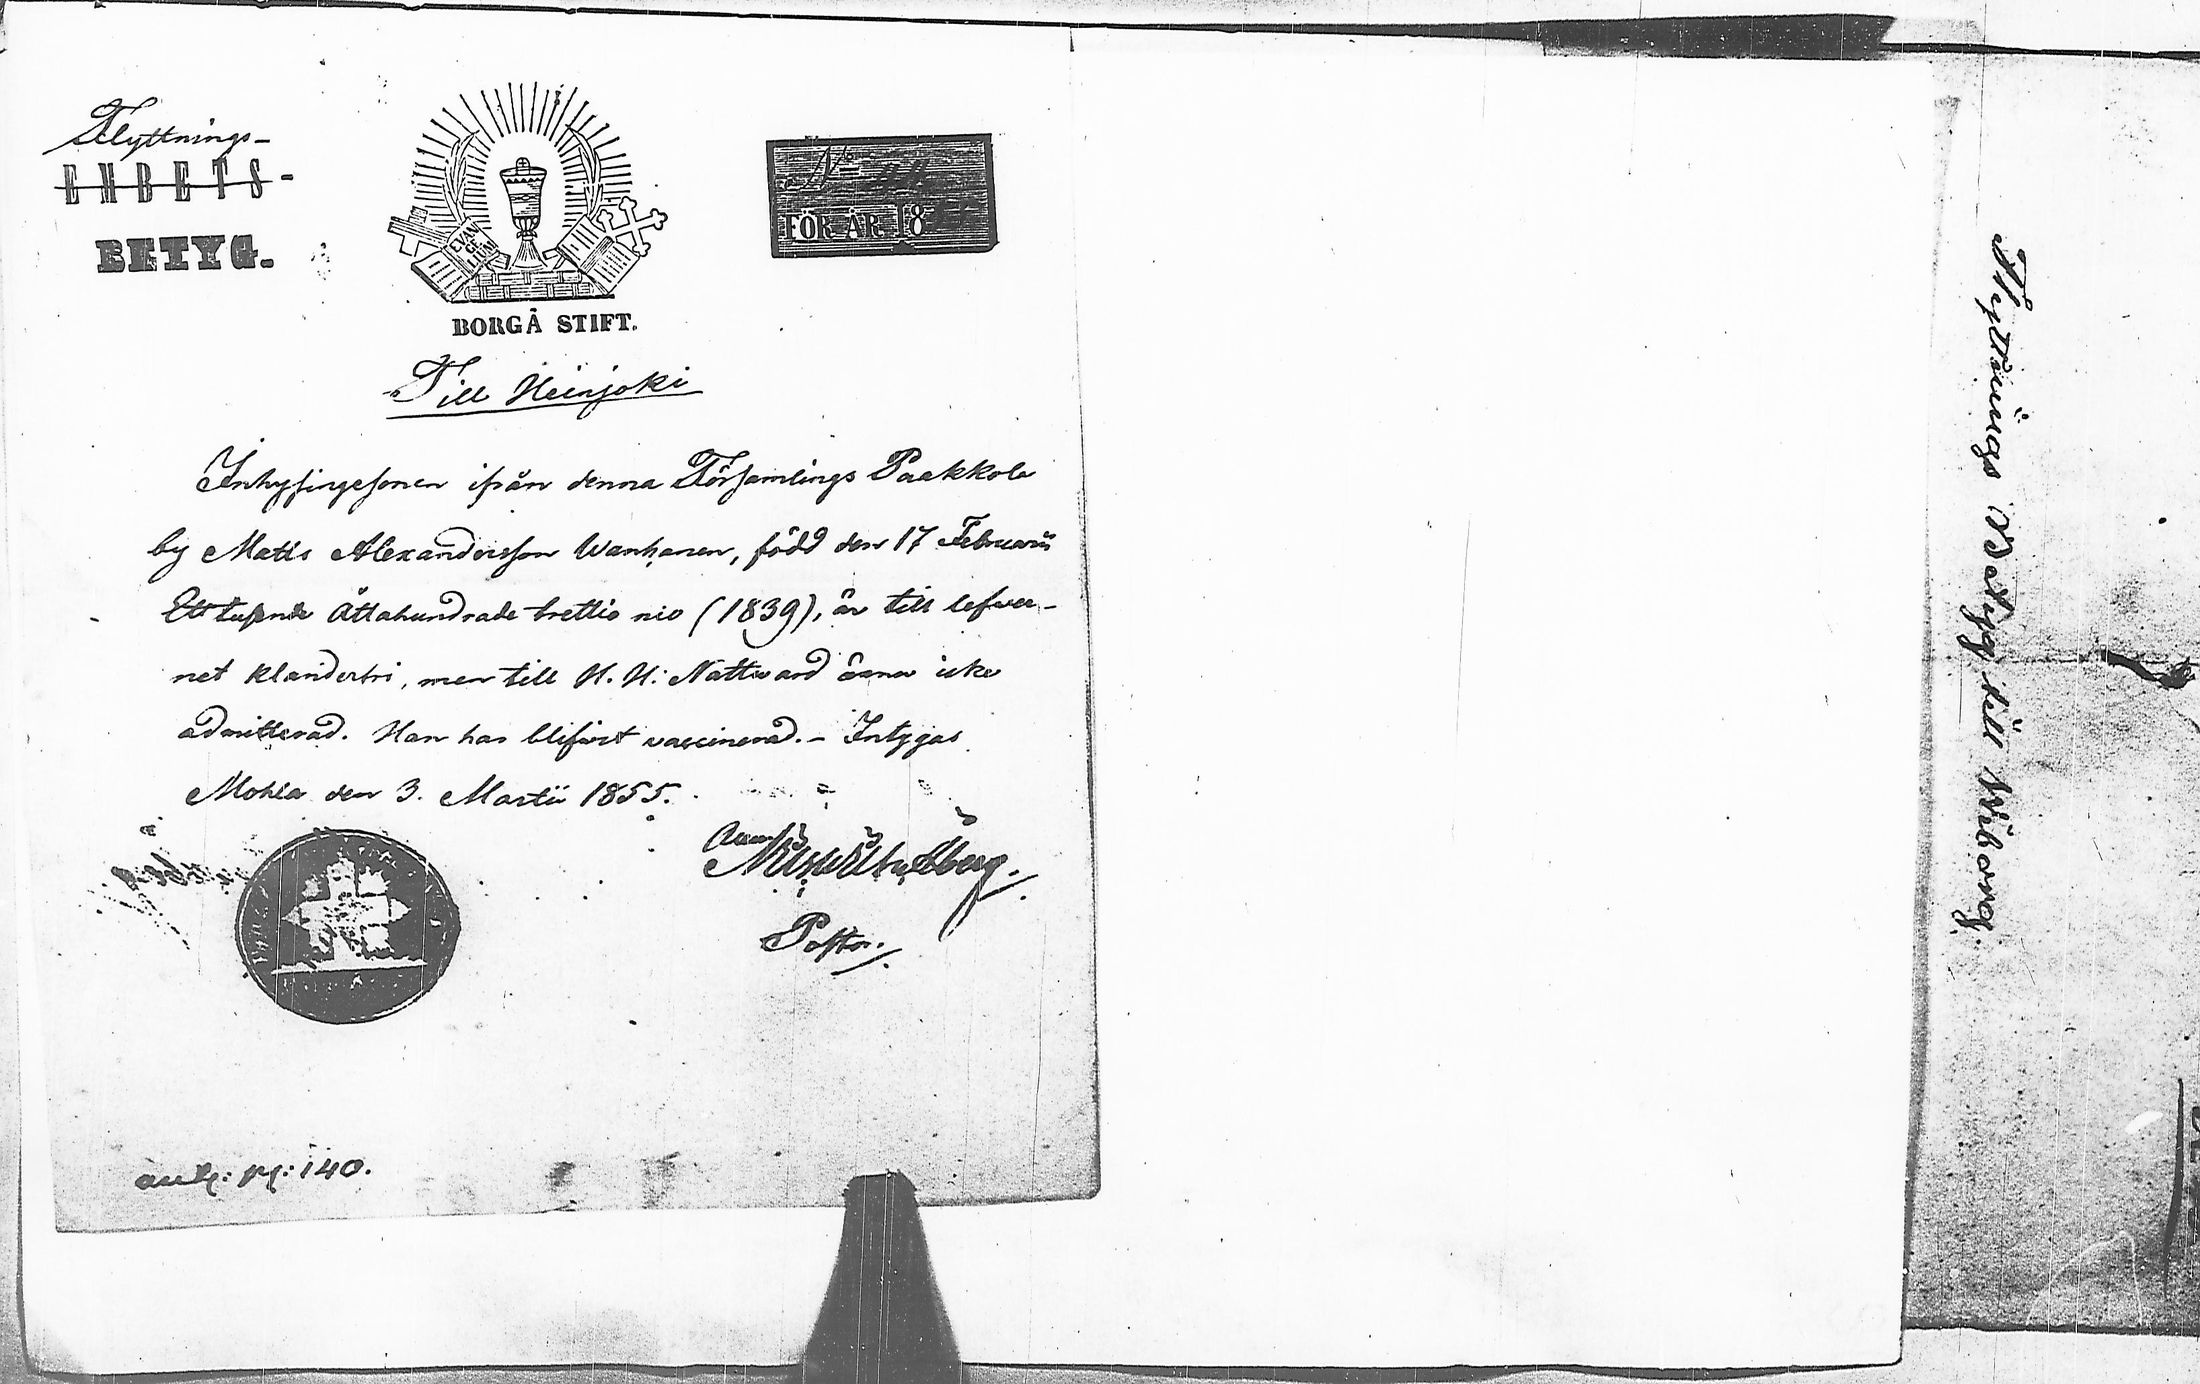 Flyttnings-
EMBETS-
BETYG.
EVAN
GE
LIUM
BORGÅ STIFT.
No
FÖR ÅR 18
Till Heinjoki
Inhysingesonen ifrån denna Församlings Paakkola
by Matts Alexandersson Wanhanen, född den 17 Februarii
Ett tusende Åttahundrade trettio nio (1839), är till lefver-
net klanderfri, men till H. H. Nattward ännu icke
admitterad. Han har blifwit vaccinerad. - Intygas
Mohla den 3. Martii 1855.
Pastor.
pg: 140.
Flyttnings Betyg till Wiborg